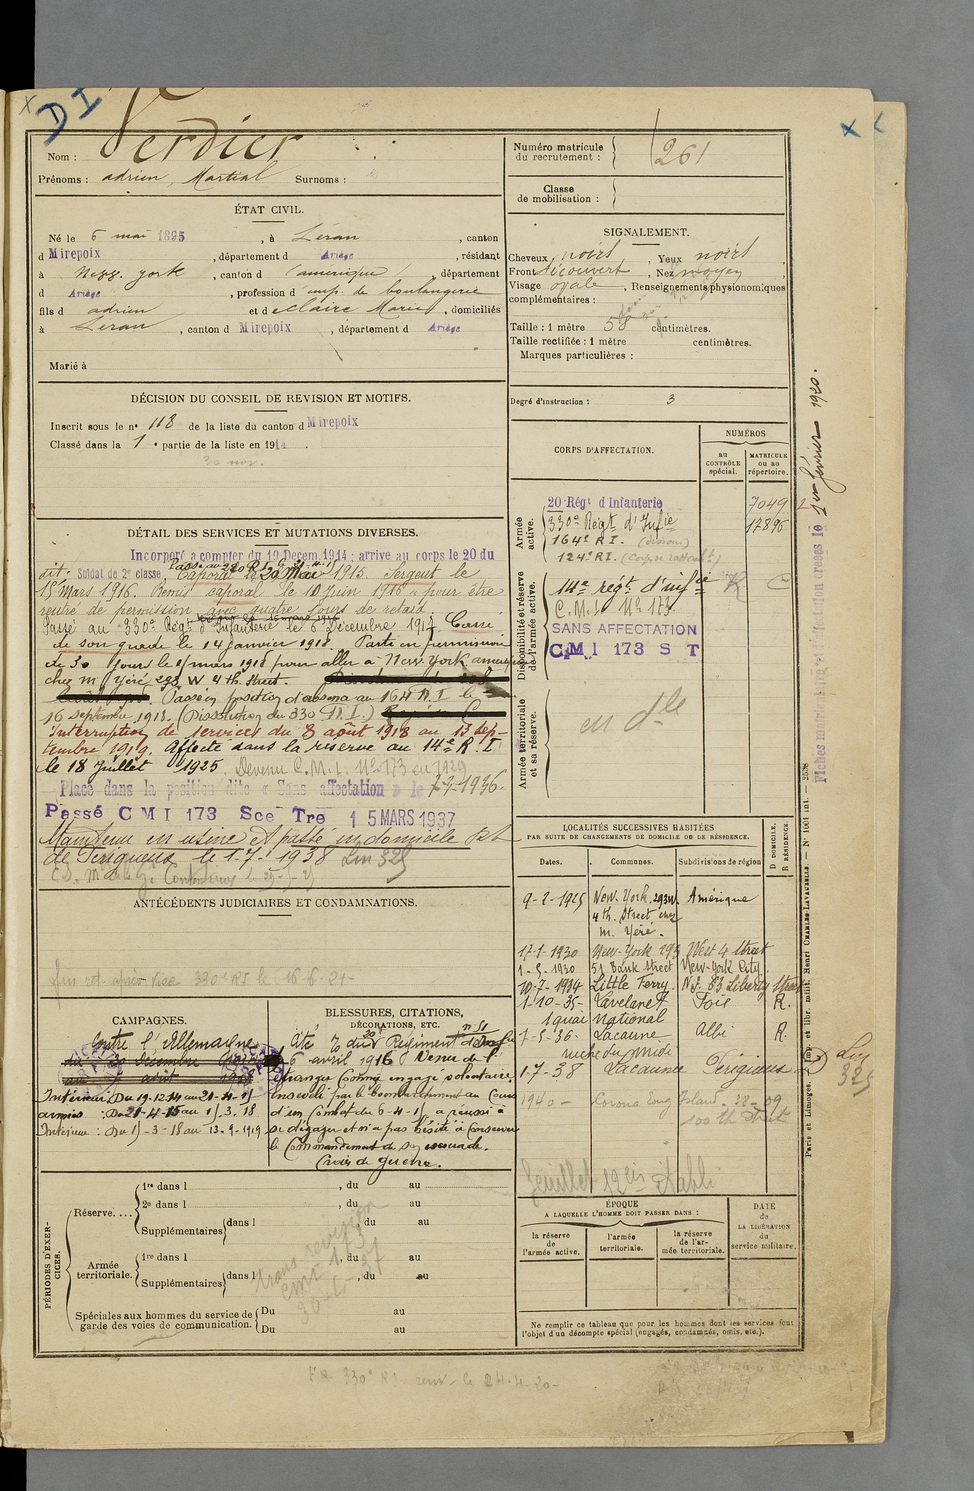 DI
Nom : Verdier
Prénoms : adrien, Martial Surnoms :
Numéro matricule du recrutement : 261
Classe de mobilisation :
ÉTAT CIVIL.
Né le 6 mai 1895, à Léran, canton
d Mirepoix, département d Ariège, résidant
à New-york, canton d amérique, département
d Ariège, profession d emp. de boulangerie
fils d adrien et de Claire Marie, domiciliés
à Léran, canton d Mirepoix, département d Ariège
Marié à
SIGNALEMENT.
Cheveux noirs, Yeux noirs
Front découvert, Nez moyen
Visage ovale, Renseignements physionomiques
complémentaires :
Taille : 1 mètre 58 centimètres.
Taille rectifiée : 1 mètre centimètres.
Marques particulières :
Degré d'instruction : 3
DÉCISION DU CONSEIL DE REVISION ET MOTIFS.
Inscrit sous le n° 118 de la liste du canton d Mirepoix
Classé dans la 1 e partie de la liste en 1914.
DÉTAIL DES SERVICES ET MUTATIONS DIVERSES.
Incorporé a compter du 19 Decem. 1914 : arrivé au corps le 20 du
dit. Soldat de 2e classe, Caporal le 20 Mai 1915. Sergent le
15 Mars 1916. Remis caporal le 10 juin 1916 pour être
rentré de permission avec quatre jours de retard.
Passé au 330e Régt d'Infanterie le 6 Décembre 1917. Cassé
de son grade le 14 janvier 1918. Parti en permission
de 30 jours le 15 mars 1918 pour aller à New York
chez m Yéré 293 W 4 th. Street.
Passé en position d'absence au 164 R.I. le
16 septembre 1918. (Dissolution du 330 R.I.)
Interruption de services du 3 août 1918 au 13 sep-
tembre 1919. Affecté dans la réserve au 14e R.I.
le 18 Juillet 1925. Devenu C.M.I. No 173 en 1929
Placé dans la position dite « Sans affectation » le 7-7-1936.
Passé CMI 173 Sce Tre 15 MARS 1937
Maintenu en usine et passé en domicile
de Périgueux le 1-7-1938 Lin 325
ANTÉCÉDENTS JUDICIAIRES ET CONDAMNATIONS.
CORPS D'AFFECTATION.
NUMÉROS
au CONTRÔLE spécial.
MATRICULE ou au répertoire.
Armée active.
20 Régt d'Infanterie 7049
330e Régt d'Infie 12896
164e R.I. (dissous)
124e R.I.
Disponibilité et réserve de l'armée active.
14e régt d'infie
C.M.I. No 173
SANS AFFECTATION
CMI 173 S T
Armée territoriale et sa réserve.
en dlle
LOCALITÉS SUCCESSIVES HABITÉES
PAR SUITE DE CHANGEMENTS DE DOMICILE OU DE RÉSIDENCE.
D DOMICILE. R RÉSIDENCE
Dates. Communes. Subdivisions de région
9-2-1925 New-York. 293 W. Amérique
4 th. Street chez
m. Yéré.
17-1-1930 New-York 293 West 4 Street
1-5-1930 51 Bank Street New-York City.
10-7-1934 Little Ferry N.J. 83 Liberty Street
1-10-35- Lavelanet Foix R.
1 quai National
7-5-36- Lacaune Albi R.
rue du Midi
1-7-38 Lacaune Périgueux
1940 - Corona Long Island. 22-09
100 th Street
Lin 325
Feuillet 12 bis établi
CAMPAGNES.
Contre l'Allemagne
Intérieur : Du 19-12-14 au 20-4-15
armées : Du 21-4-15 au 15-3-18
Intérieur : Du 15-3-18 au 13-9-1919
BLESSURES, CITATIONS, DÉCORATIONS, ETC.
Cité à l'ordre du 20 Régiment n° 51
6 avril 1916 Venu de l'
étranger comme engagé volontaire.
Enseveli par le bombardement au cours
d'un combat du 6-4-15 a réussi à
se dégager et n'a pas hésité à conserver
le commandement de son escouade.
Croix de guerre.
PÉRIODES D'EXERCICES.
Réserve.... 1re dans l , du au
2e dans l , du au
Supplémentaires dans l , du au
Armée territoriale. 1re dans l , du au
Supplémentaires dans l , du au
Spéciales aux hommes du service de garde des voies de communication. Du au
Du au
ÉPOQUE
A LAQUELLE L'HOMME DOIT PASSER DANS :
la réserve de l'armée active.
l'armée territoriale.
la réserve de l'armée territoriale.
DATE de LA LIBÉRATION du service militaire.
Ne remplir ce tableau que pour les hommes dont les services font
l'objet d'un décompte spécial (engagés, condamnés, omis, etc.).
1er février 1920.
Paris et Limoges. — Imp. et libr. milit. Henri CHARLES-LAVAUZELLE. — N° 1001 int. — 2538